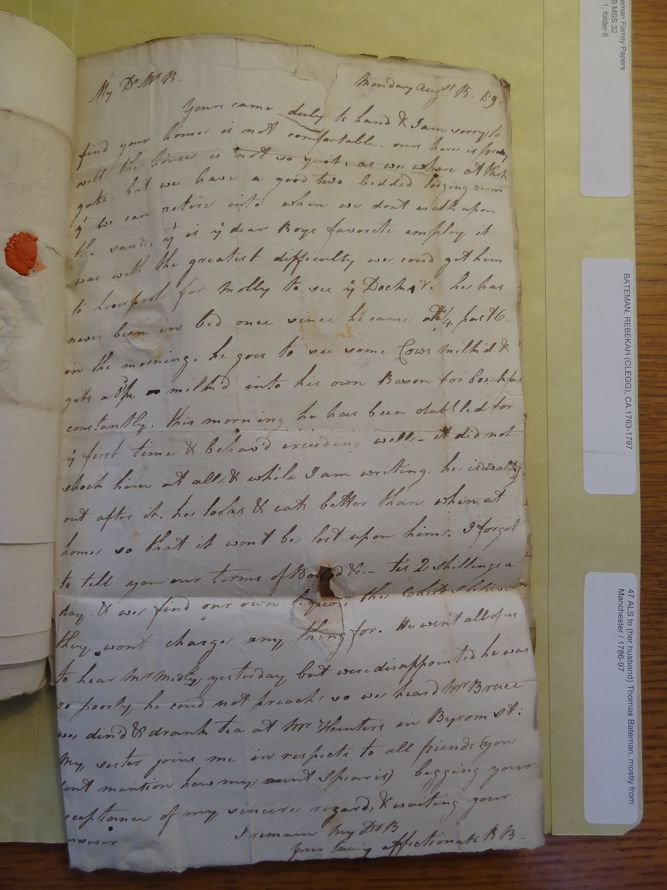 eman Family Papers
MSS 32
1, folder 6
BATEMAN, REBEKAH (CLEGG), CA 1763-1797
47 ALS to (her husband) Thomas Bateman, mostly from
Manchester / 1786-97
My Dr Mr B. Monday Augst 15. 89
Yours came duly to hand & I am sorry to
find your home is not comfortable. our here is pretty
well the house is not so quit, as we where at that
gate. but we have a good two bedded lodging room
yt we can retire into when we dont walk upon
the sands, yt is ye dear Boys favorite employ it
was with the greatest difficulty we coud get him
to Liverpool for Molly to see ye Docktr. he has
never been in bed once since he came at 1/4 past 6
in the morning. he goes to see some Cows milk'd &
gets a milk'd into his own Bason for breakfast
constantly. this morning he has been dabbled for
ye first time & behav'd exceeding well - it did not
shock him at all & while I am writing. he is
out after it. he looks & eats better than when at
home so that it wont be lost upon him. I forgot
to tell you our terms of Board &c - tis 2 shillings a
day. & we find our own liquors the Child I believe
they wont charge any thing for. We went all of us
to hear Mr yesterday but were disappointed he was
so poorly he coud not preach so we heard Mr Bruce
we din'd & drank tea at Mr Hunters in Byrom St:
My sister joins me in respects to all friends (you
ont mention how my aunt Spear is) begging your
cceptance of my sincere regard, & waiting your
nswer I remain My Dr B
Your truly affectionate R B-